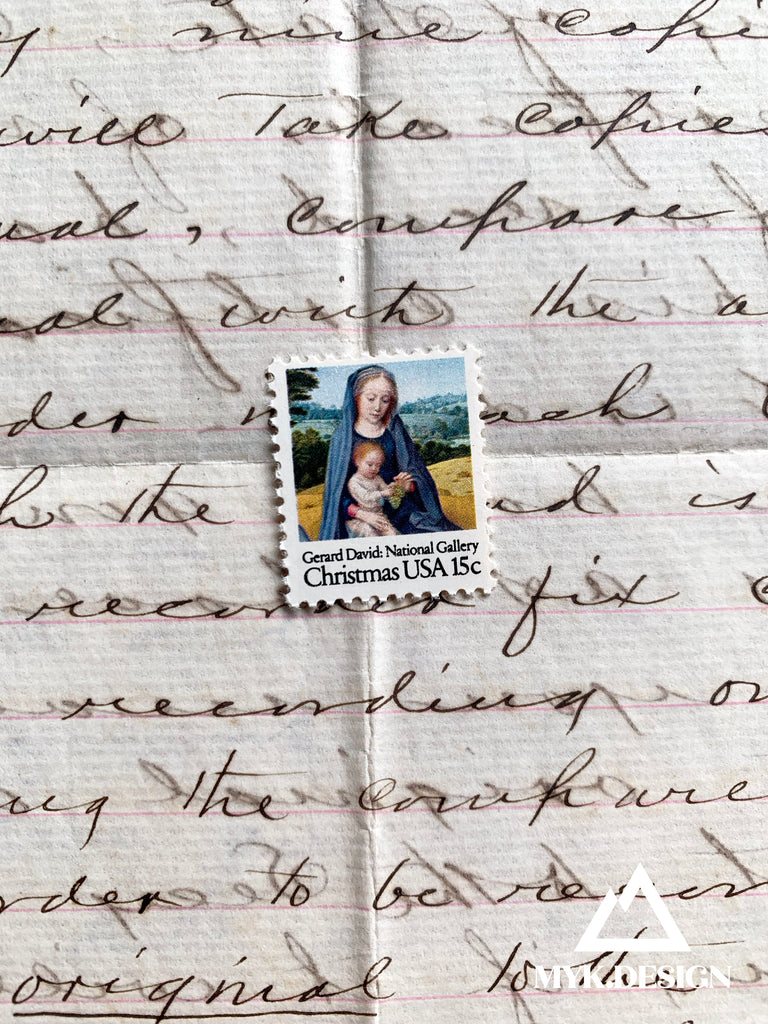 nine copi
will Take copie
ual, compare
al with the a
der ach
h the d is
recorner fix
recording on
ng the compare
rder to be recor
original to the
Gerard David: National Gallery
Christmas USA 15c
MYK.DESIGN